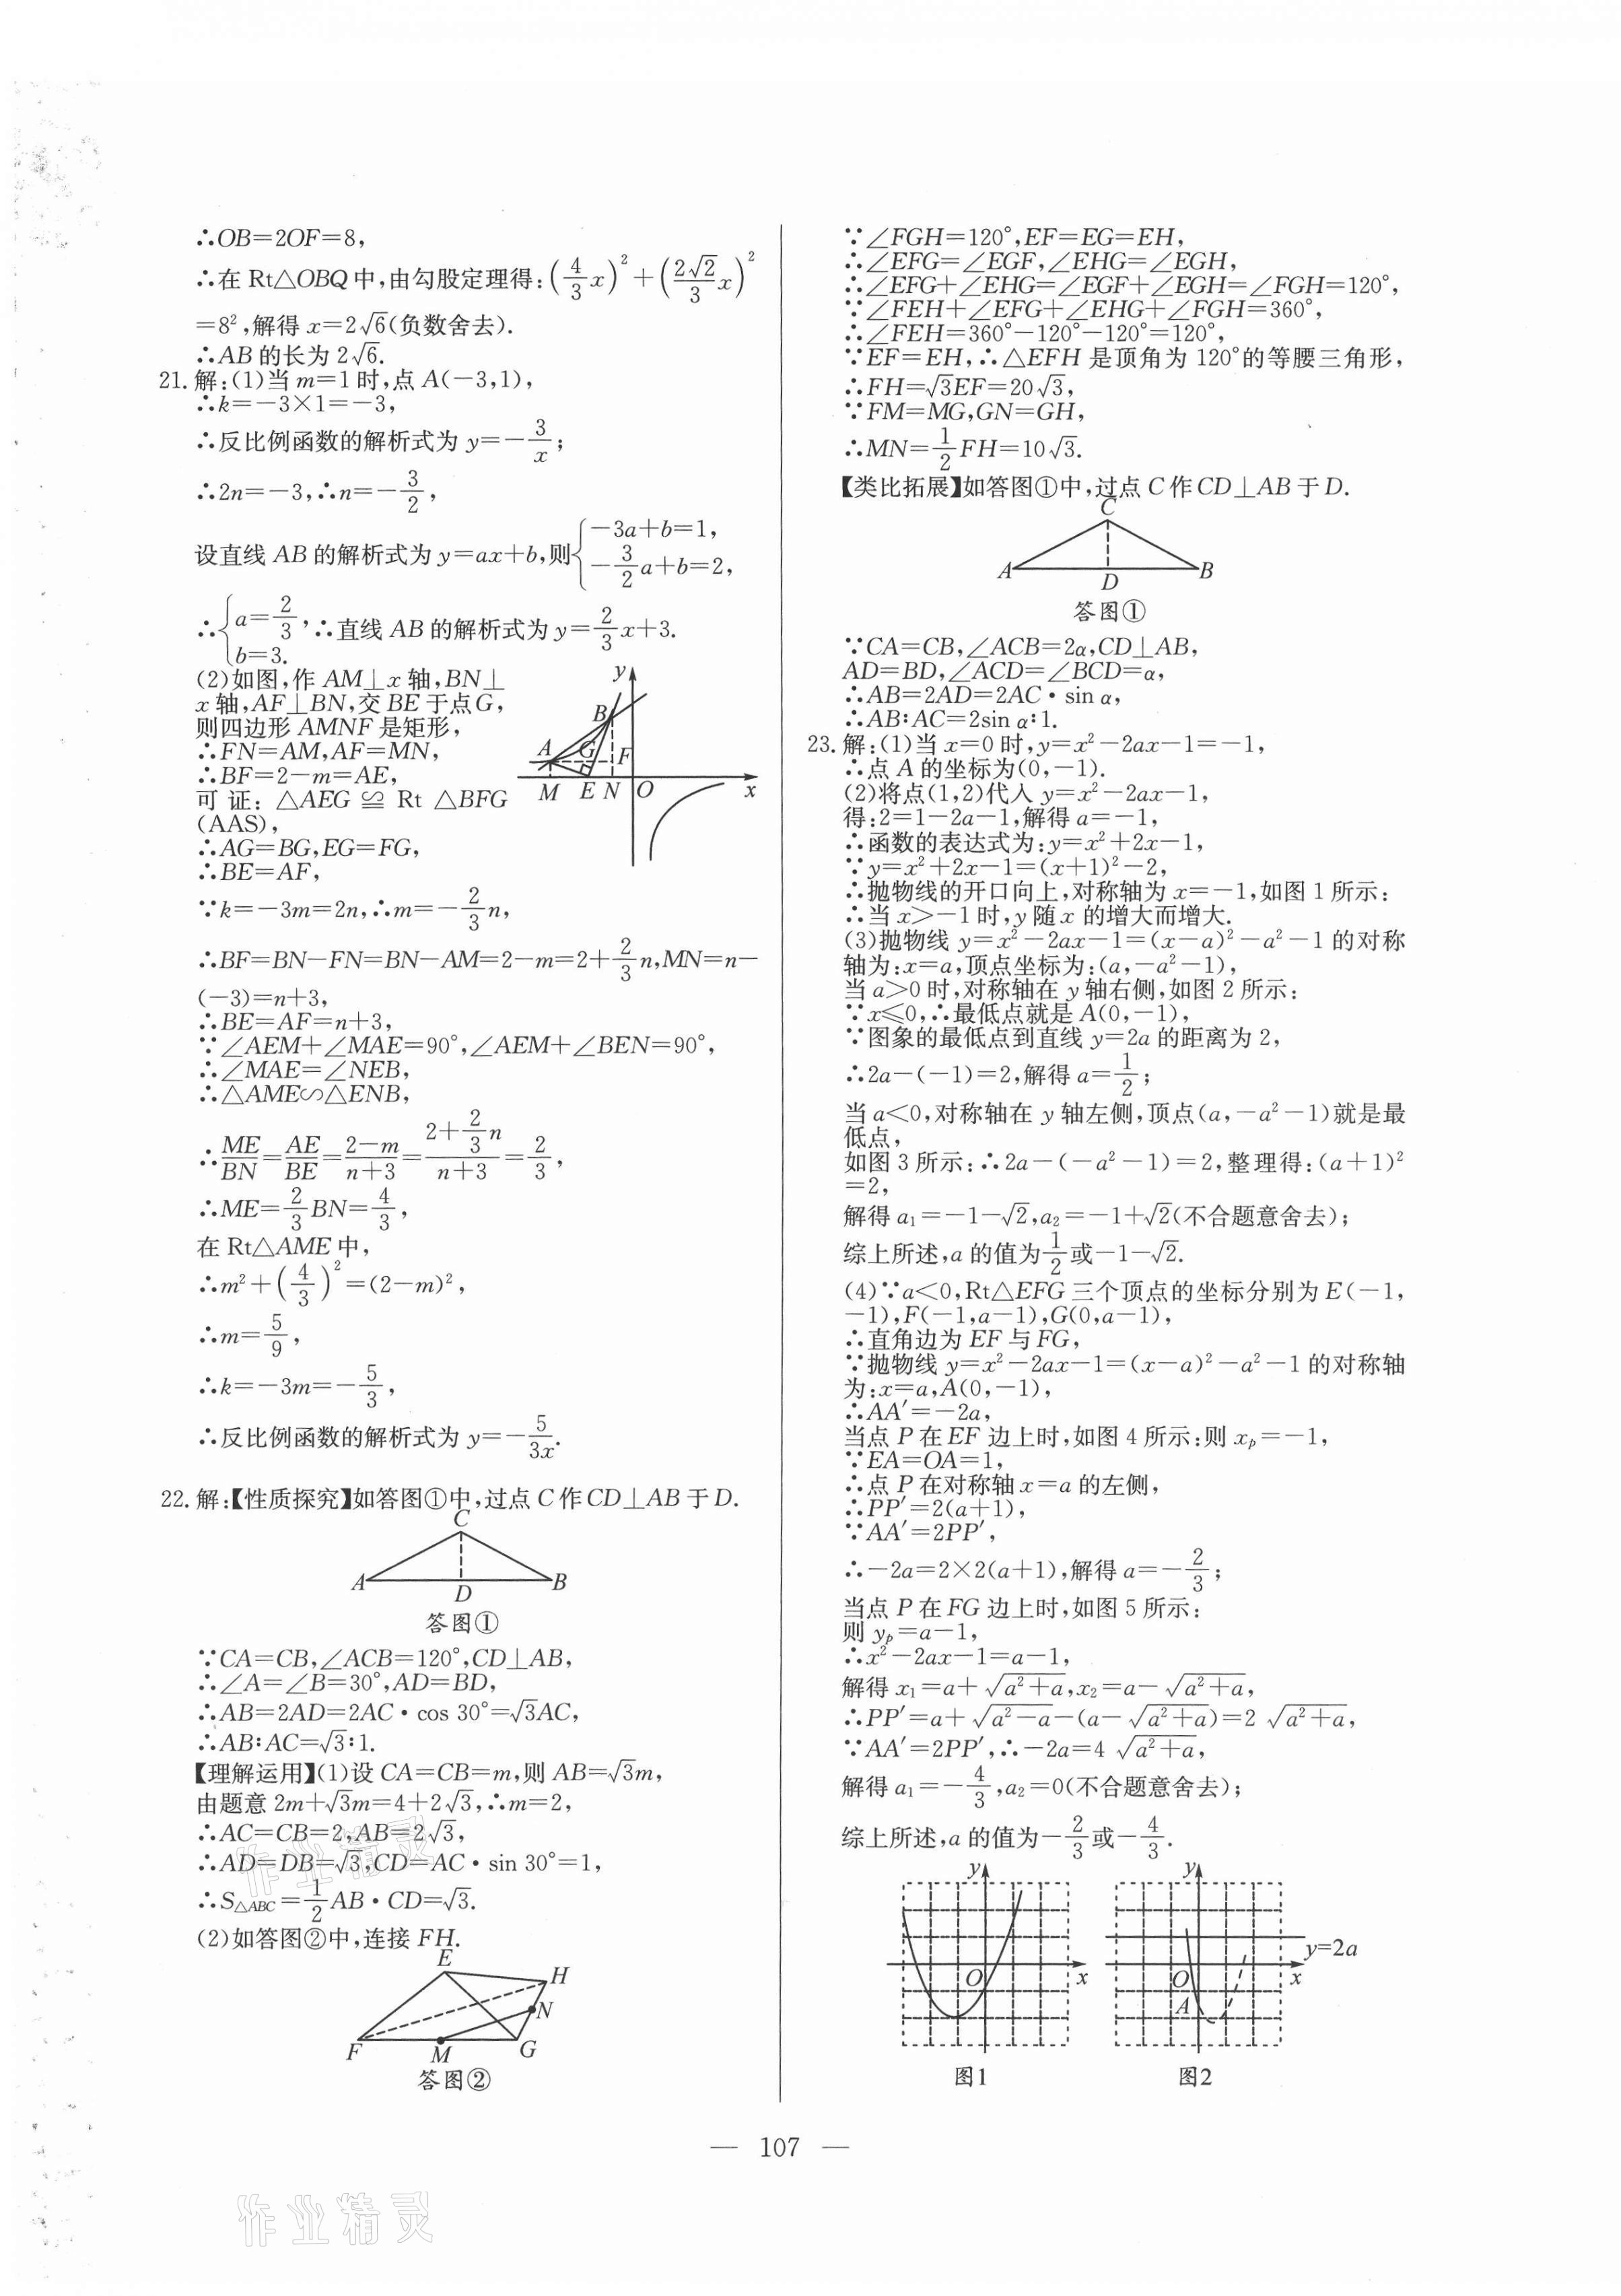 ∴OB=2OF=8,
∴在 Rt△OBQ 中,由勾股定理得:(4/3 x)²+(2√2/3 x)²
=8²,解得 x=2√6(负数舍去).
∴AB 的长为 2√6.
21. 解:(1)当 m=1 时,点 A(−3,1),
∴k=−3×1=−3,
∴反比例函数的解析式为 y=−3/x;
∴2n=−3,∴n=−3/2,
设直线 AB 的解析式为 y=ax+b,则{−3a+b=1, −3/2 a+b=2,
∴{a=2/3, b=3. ∴直线 AB 的解析式为 y=2/3 x+3.
(2)如图,作 AM⊥x 轴,BN⊥
x 轴,AF⊥BN,交 BE 于点G,
则四边形 AMNF 是矩形,
∴FN=AM,AF=MN,
∴BF=2−m=AE,
可证:△AEG≌Rt△BFG
(AAS),
∴AG=BG,EG=FG,
∴BE=AF,
y
B
A
G
F
M E N O x
∵k=−3m=2n,∴m=−2/3 n,
∴BF=BN−FN=BN−AM=2−m=2+2/3 n,MN=n−
(−3)=n+3,
∴BE=AF=n+3,
∵∠AEM+∠MAE=90°,∠AEM+∠BEN=90°,
∴∠MAE=∠NEB,
∴△AME∽△ENB,
∴ME/BN=AE/BE=(2−m)/(n+3)=(2+2/3 n)/(n+3)=2/3,
∴ME=2/3 BN=4/3,
在 Rt△AME 中,
∴m²+(4/3)²=(2−m)²,
∴m=5/9,
∴k=−3m=−5/3,
∴反比例函数的解析式为 y=−5/3x.
22. 解:【性质探究】如答图①中,过点 C 作 CD⊥AB 于 D.
C
A
D
B
答图①
∵CA=CB,∠ACB=120°,CD⊥AB,
∴∠A=∠B=30°,AD=BD,
∴AB=2AD=2AC·cos 30°=√3AC,
∴AB∶AC=√3∶1.
【理解运用】(1)设 CA=CB=m,则 AB=√3m,
由题意 2m+√3m=4+2√3,∴m=2,
∴AC=CB=2,AB=2√3,
∴AD=DB=√3,CD=AC·sin 30°=1,
∴S△ABC=1/2 AB·CD=√3.
(2)如答图②中,连接 FH.
E
H
N
F
M
G
答图②
∵∠FGH=120°,EF=EG=EH,
∴∠EFG=∠EGF,∠EHG=∠EGH,
∴∠EFG+∠EHG=∠EGF+∠EGH=∠FGH=120°,
∵∠FEH+∠EFG+∠EHG+∠FGH=360°,
∴∠FEH=360°−120°−120°=120°,
∵EF=EH,∴△EFH 是顶角为 120°的等腰三角形,
∴FH=√3EF=20√3,
∵FM=MG,GN=GH,
∴MN=1/2 FH=10√3.
【类比拓展】如答图①中,过点 C 作 CD⊥AB 于 D.
C
A
D
B
答图①
∵CA=CB,∠ACB=2α,CD⊥AB,
AD=BD,∠ACD=∠BCD=α,
∴AB=2AD=2AC·sin α,
∴AB∶AC=2sin α∶1.
23. 解:(1)当 x=0 时,y=x²−2ax−1=−1,
∴点 A 的坐标为(0,−1).
(2)将点(1,2)代入 y=x²−2ax−1,
得:2=1−2a−1,解得 a=−1,
∴函数的表达式为:y=x²+2x−1,
∵y=x²+2x−1=(x+1)²−2,
∴抛物线的开口向上,对称轴为 x=−1,如图 1 所示:
∴当 x>−1 时,y 随 x 的增大而增大.
(3)抛物线 y=x²−2ax−1=(x−a)²−a²−1 的对称
轴为:x=a,顶点坐标为:(a,−a²−1),
当 a>0 时,对称轴在 y 轴右侧,如图 2 所示:
∵x≤0,∴最低点就是 A(0,−1),
∵图象的最低点到直线 y=2a 的距离为 2,
∴2a−(−1)=2,解得 a=1/2;
当 a<0,对称轴在 y 轴左侧,顶点(a,−a²−1)就是最
低点,
如图 3 所示:∴2a−(−a²−1)=2,整理得:(a+1)²
=2,
解得 a₁=−1−√2,a₂=−1+√2(不合题意舍去);
综上所述,a 的值为1/2或−1−√2.
(4)∵a<0,Rt△EFG 三个顶点的坐标分别为 E(−1,
−1),F(−1,a−1),G(0,a−1),
∴直角边为 EF 与 FG,
∵抛物线 y=x²−2ax−1=(x−a)²−a²−1 的对称轴
为:x=a,A(0,−1),
∴AA′=−2a,
当点 P 在 EF 边上时,如图 4 所示:则 xₚ=−1,
∵EA=OA=1,
∴点 P 在对称轴 x=a 的左侧,
∴PP′=2(a+1),
∵AA′=2PP′,
∴−2a=2×2(a+1),解得 a=−2/3;
当点 P 在 FG 边上时,如图 5 所示:
则 yₚ=a−1,
∴x²−2ax−1=a−1,
解得 x₁=a+√(a²+a),x₂=a−√(a²+a),
∴PP′=a+√(a²−a)−(a−√(a²+a))=2√(a²+a),
∵AA′=2PP′,∴−2a=4√(a²+a),
解得 a₁=−4/3,a₂=0(不合题意舍去);
综上所述,a 的值为−2/3或−4/3.
y
O
x
图1
y
y=2a
O
x
A
图2
— 107 —
作业精灵
作业精灵